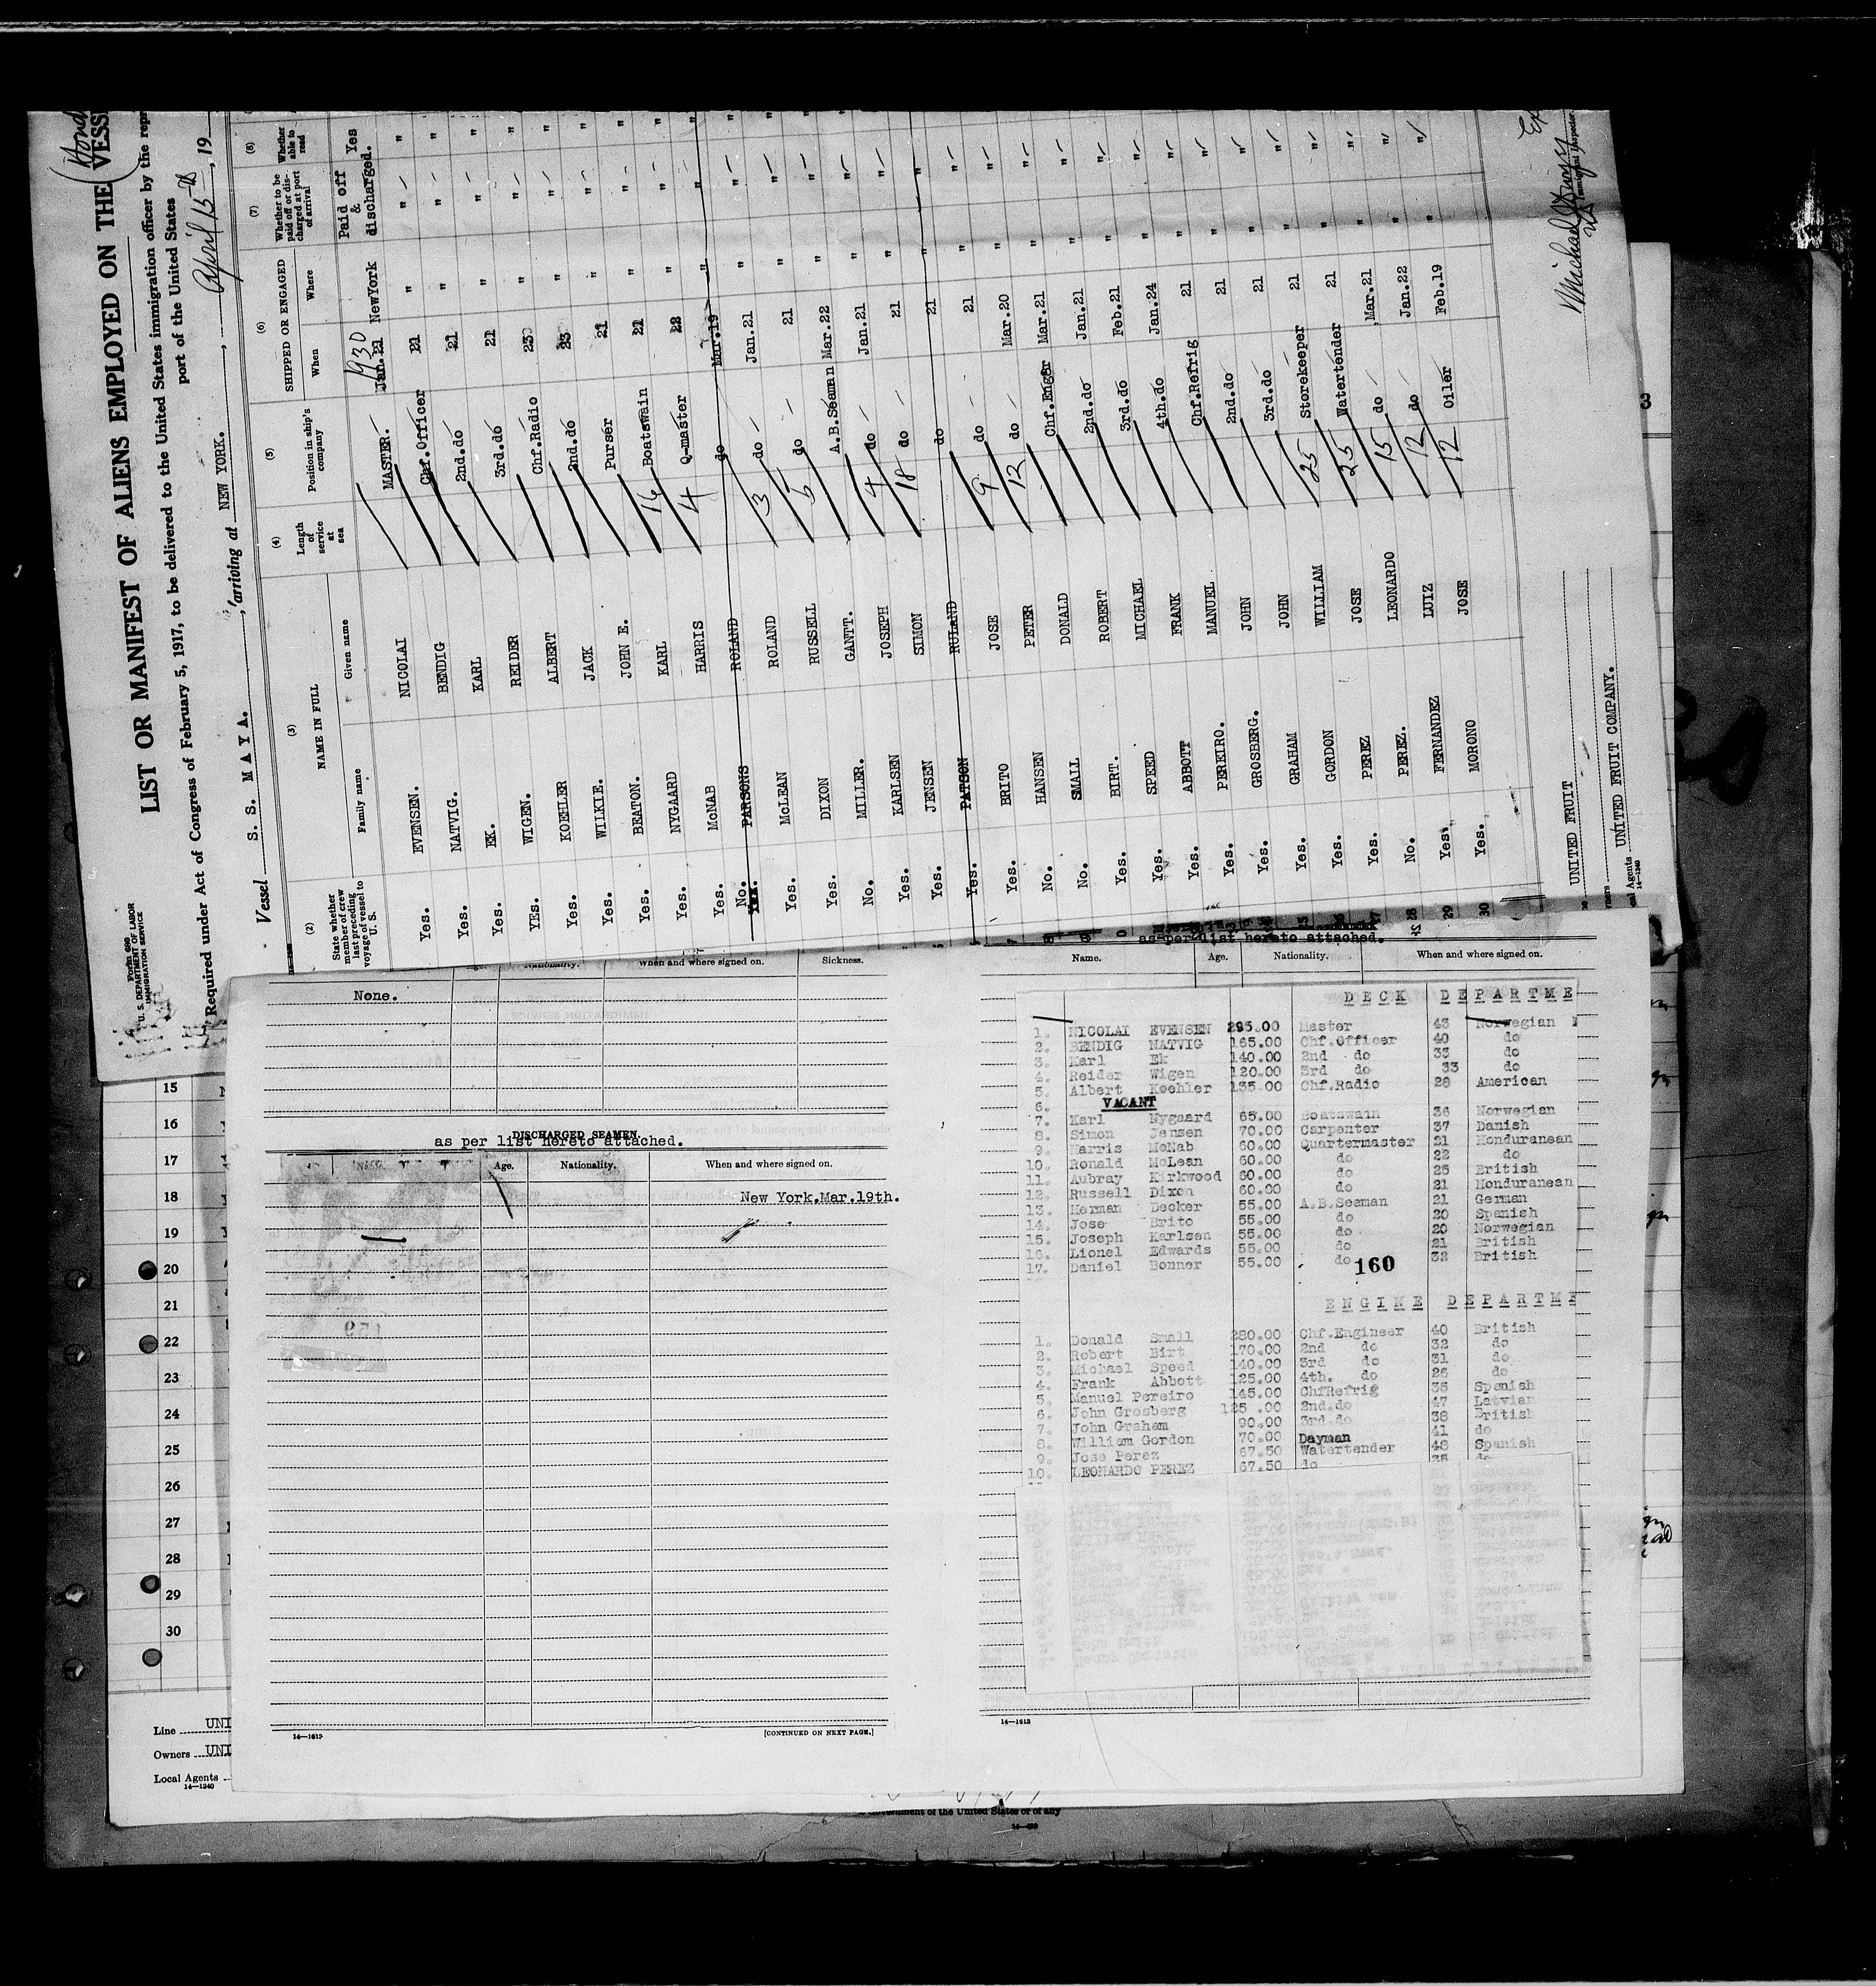 Form 689
U. S. DEPARTMENT OF LABOR
IMMIGRATION SERVICE
LIST OR MANIFEST OF ALIENS EMPLOYED ON THE VESS
Required under Act of Congress of February 5, 1917, to be delivered to the United States immigration officer by the repr
port of the United States
Vessel S. S. MAYA. , arriving at NEW YORK. , April 15th , 19
(2) (3) (4) (5) (6) (7) (8)
State whether member of crew last preceding voyage of vessel to U. S.
NAME IN FULL
Family name Given name
Length of service at sea
Position in ship's company
SHIPPED OR ENGAGED
When Where
Whether to be paid off or discharged at port of arrival
Whether able to read
1930
Yes. EVENSEN. NICOLAI MASTER. Jan.21 NewYork Paid off & discharged. Yes
Yes. NATVIG. BENDIG Chf.Officer 21 " " "
Yes. EK. KARL 2nd.do 21 " " "
YES. WIGEN. REIDER 3rd.do 21 " " "
Yes. KOEHLER ALBERT Chf.Radio 23 " " "
Yes. WILKIE. JACK 2nd.do 23 " " "
Yes. BEATON. JOHN E. Purser 21 " " "
Yes. NYGAARD KARL 16 Boatswain 21 " " "
Yes. McNAB HARRIS 4 Q-master 22 " " "
No. PARSONS ROLAND do Mar.19 " " "
Yes. McLEAN ROLAND 3 do Jan.21 " " "
Yes. DIXON RUSSELL 5 do 21 " " "
No. MILLER. GANTT. A.B.Seaman Mar.22 " " "
Yes. KARLSEN JOSEPH 4 do Jan.21 " " "
Yes. JENSEN SIMON 18 do 21 " " "
Yes. PATSON RULAND do 21 " " "
Yes. BRITO JOSE 9 do 21 " " "
No. HANSEN PETER 12 do Mar.20 " " "
No. SMALL DONALD Chf.Enger Mar.21 " " "
Yes. BIRT. ROBERT 2nd.do Jan.21 " " "
Yes. SPEED MICHAEL 3rd.do Feb.21 " " "
Yes. ABBOTT FRANK 4th.do Jan.24 " " "
Yes. PEREIRO. MANUEL Chf.Refrig 21 " " "
Yes. GROSBERG. JOHN 2nd.do 21 " " "
Yes. GRAHAM JOHN 3rd.do 21 " " "
Yes. GORDON WILLIAM 25 Storekeeper 21 " " "
Yes. PEREZ JOSE 25 Watertender 21 " " "
No. PEREZ. LEONARDO 15 do Mar.21 " " "
Yes. FERNANDEZ LUIZ 12 do Jan.22 " " "
Yes. MORONO JOSE 12 Oiler Feb.19 " " "
28
29
30
UNITED FRUIT
UNITED FRUIT COMPANY.
14—1240
Immigrant Inspector.
Nationality. When and where signed on. Sickness.
None.
DISCHARGED SEAMEN.
as per list hereto attached.
Age. Nationality. When and where signed on.
New York.Mar.19th.
14—1613
[CONTINUED ON NEXT PAGE.]
as per list hereto attached.
Name. Age. Nationality. When and where signed on.
DECK DEPARTME
1. NICOLAI EVENSEN 295.00 Master 43 Norwegian
2. BENDIG NATVIG 165.00 Chf.Officer 40 do
3. Karl Ek 140.00 2nd do 33 do
4. Reider Wigen 120.00 3rd do 33 do
5. Albert Koehler 135.00 Chf.Radio 28 American
6. VACANT
7. Karl Nygaard 65.00 Boatswain 36 Norwegian
8. Simon Jensen 70.00 Carpenter 37 Danish
9. Harris McNab 60.00 Quartermaster 21 Honduranean
10. Ronald McLean 60.00 do 22 do
11. Aubray Kirkwood 60.00 do 25 British
12. Russell Dixon 60.00 do 21 Honduranean
13. Herman Decker 55.00 A.B.Seaman 21 German
14. Jose Brito 55.00 do 20 Spanish
15. Joseph Karlsen 55.00 do 20 Norwegian
16. Lionel Edwards 55.00 do 21 British
17. Daniel Bonner 55.00 do 32 British
160
ENGINE DEPARTME
1. Donald Small 280.00 Chf.Engineer 40 British
2. Robert Birt 170.00 2nd do 32 do
3. Michael Speed 140.00 3rd do 31 do
4. Frank Abbott 125.00 4th. do 26 do
5. Manuel Pereiro 145.00 ChfRefrig 35 Spanish
6. John Grosberg 125.00 2nd.do 47 Latvian
7. John Graham 90.00 3rd.do 38 British
8. William Gordon 70.00 Dayman 41 do
9. Jose Perez 67.50 Watertender 48 Spanish
10. LEONARDO PEREZ 67.50 do 35 do
14—1613
15
16
17
18
19
20
21
22
23
24
25
26
27
28
29
30
Line UNI
Owners UNI
Local Agents
14—1240
Government of the United States or of any